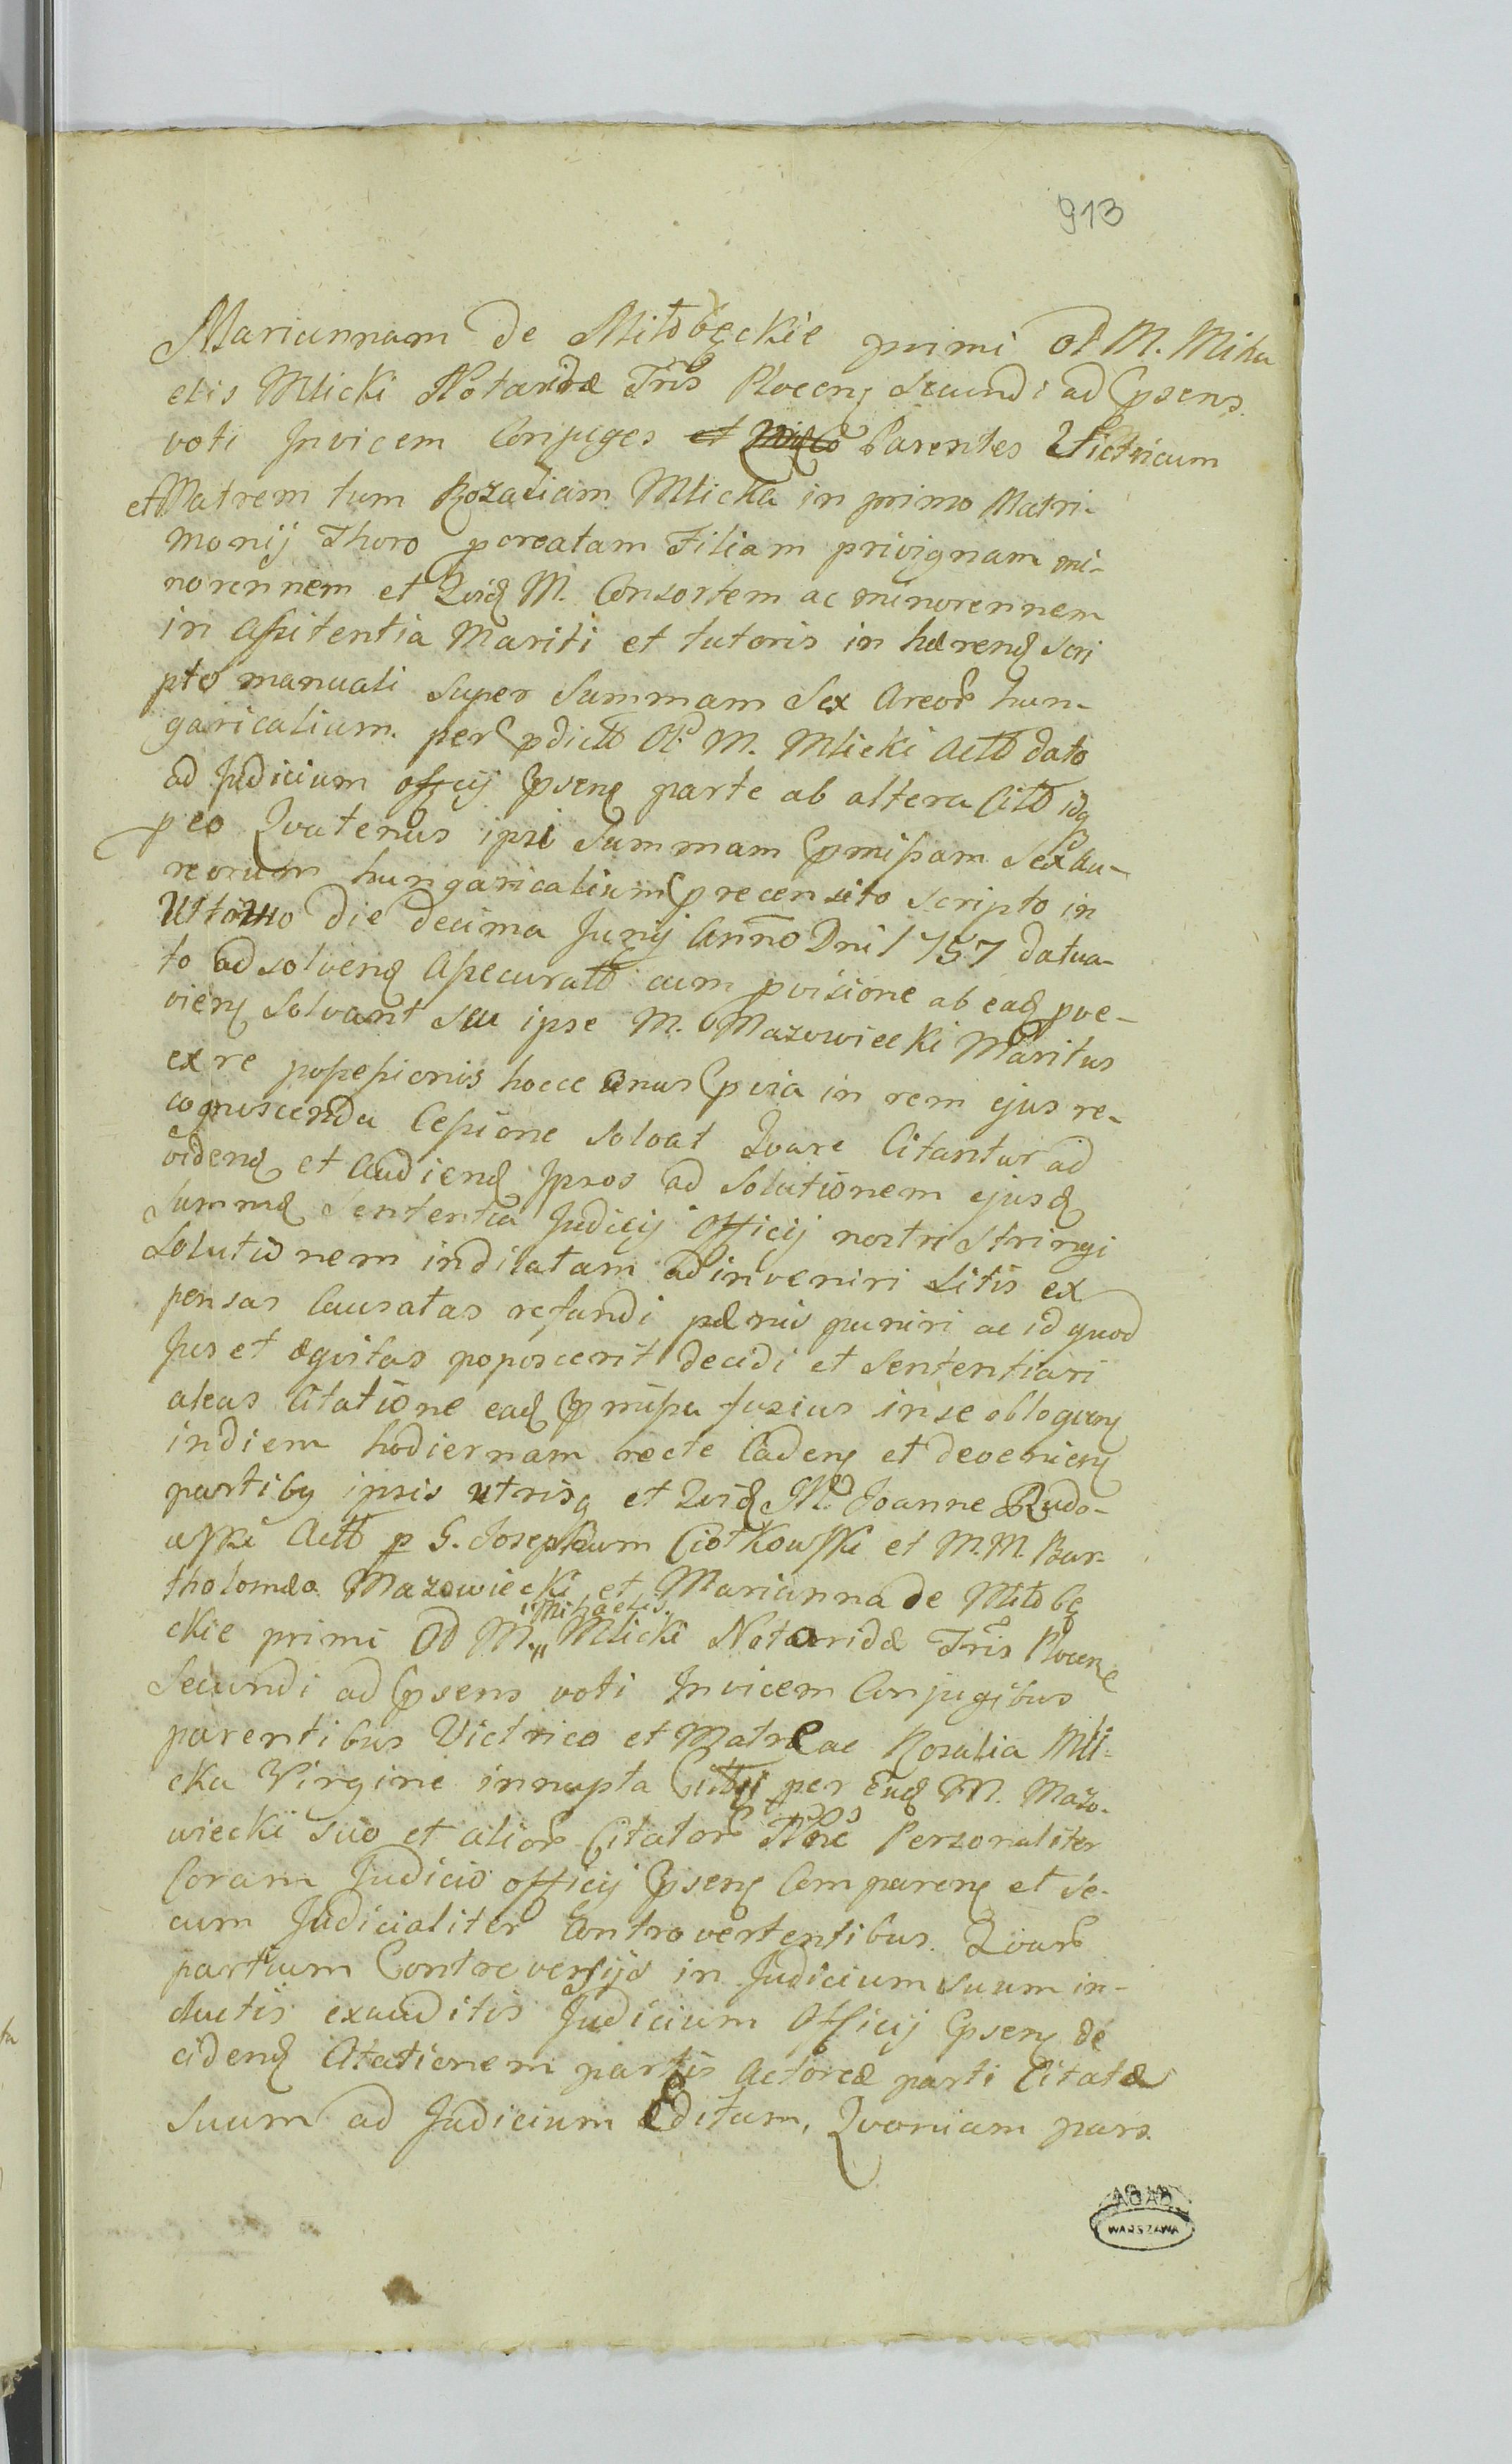 913
Mariannam de Miłobęckie primi Ol M. Micha
elis Mlicki Notaridæ Tris Plocens secundi ad psens.
voti Invicem Conjuges et Parentes Victricum
et Matrem tum Rozaliam Mlicka in primo Matri-
monij Thoro pcreatam Filiam privignam mi-
norennem et Qvid M. Consortem ac minorennem
in Assitentia Mariti et tutoris in hærend scri
pto manuali super Summam Sex Areor hun-
garicalium. per pdicto Ol. M. Mlicki Acto dato
ad Judicium officij psens parte ab altera Cito idq
peo Qvatenus ipsi Summam pmissam Sex Au-
reorum hungaricalium precensito scripto in
die decima Junij Anno Dni 1757 datua-
to ad solvend Assecurato cum pvisione ab ead pve-
niens Solvant seu ipse M. Mazowiecki Maritus
ex re possessionis hocce onus pvia in rem ejus re-
cognoscenda Cessione solvat Qvare Citantur ad
vidend et Audiend Ipsos ad Solutionem ejusd
Summæ Sententia Judicij Officij nostri Stringi
Solutionem indilatam adinveniri Litis ex
pensas Causatas refundi pænis puniri ac id quod
Jus et æqvitas poposcerit decidi et Sententiari
aleas Citatione ead pmissa fusius in se obloqven
in diem hodiernam recte Cadens et deveniens
partibq ipsis utrisq et Qvid M. Joanne Rudo-
wski Acto p G. Josephum Ciołkowski et M. M. Bar-
tholomæo Mazowiecki et Marianna de Miłobę
ckie primi Ol M. Mihaelis Mlicki Notaridæ Tris Plocens
Secundi ad psens voti Invicem Conjugibus
parentibus Victrico et Matre ac Rosalia Mli-
cka Virgine innupta Citti per Eud M. Mazo-
wiecki suo et alior Citator Noe Personaliter
Coram Judicio officij psens Comparens et se-
cum Judicialiter Controvertentibus. Qvar
partium Controversijs in Judicium suum in-
ductis exauditis Judicium Officij psens de
cidend Citationem partis Actoreæ parti Citatæ
Suum ad Judicium Editam, Qvoniam pars.
AGAD
WARSZAWA